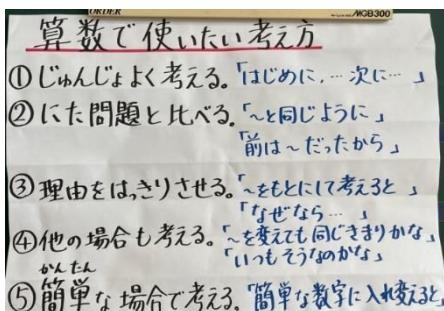 ORDER
MGB300
算数で使いたい考え方
①じゅんじょよく考える。「はじめに,…次に…」
②にた問題と比べる。「~と同じように」
「前は~だったから」
③理由をはっきりさせる。「~をもとにして考えると」
「なぜなら…」
④他の場合も考える。「~を変えても同じきまりかな」
「いつもそうなのかな」
かんたん
⑤簡単な場合で考える。「簡単な数字に入れ変えると」